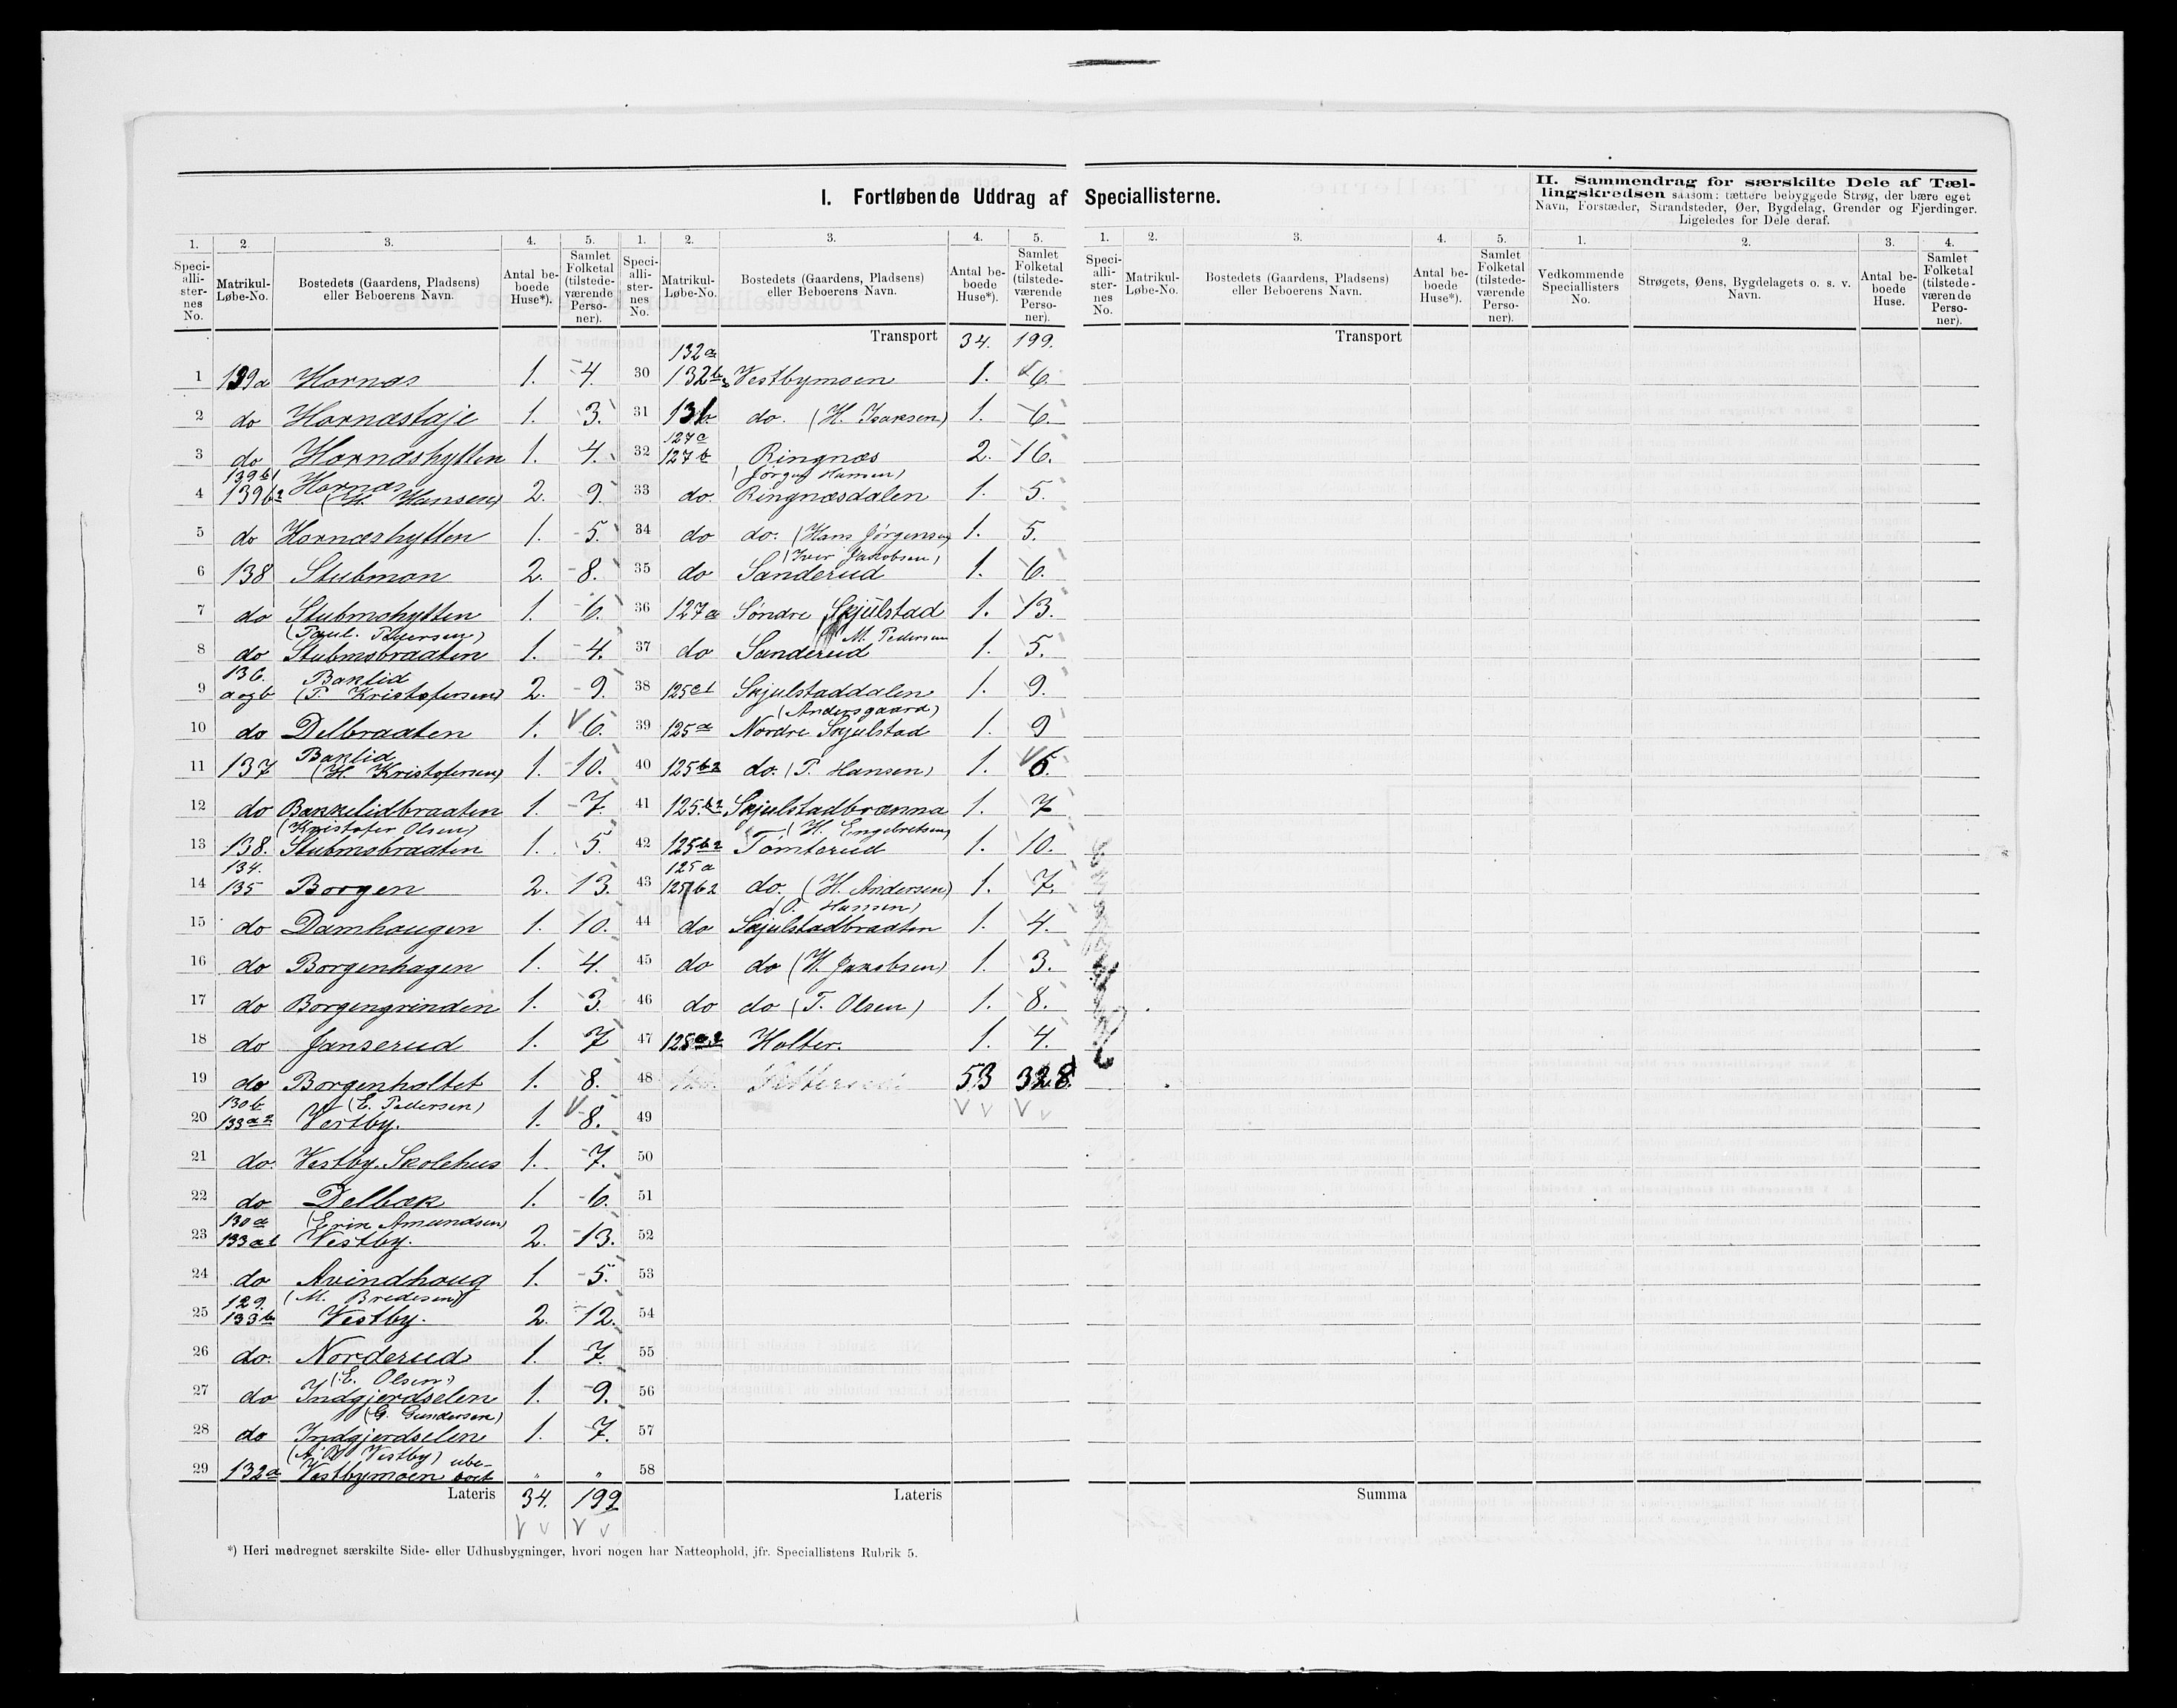 I. Fortløbende Uddrag af Speciallisterne.
II. Sammendrag for særskilte Dele af Tæl-
lingskredsen saasom: tættere bebyggede Strøg, der bære eget
Navn, Forstæder, Strandsteder, Øer, Bygdelag, Grender og Fjerdinger.
Ligeledes for Dele deraf.
1. 2. 3. 4. 5. 1. 2. 3. 4. 5. 1. 2. 3. 4. 5. 1. 2. 3. 4.
Speci-alli-ster-nes No. Matrikul-Løbe-No. Bostedets (Gaardens, Pladsens) eller Beboerens Navn. Antal be-boede Huse*). Samlet Folketal (tilstede-værende Perso-ner).
Speci-alli-ster-nes No. Matrikul-Løbe-No. Bostedets (Gaardens, Pladsens) eller Beboerens Navn. Antal be-boede Huse*). Samlet Folketal (tilstede-værende Perso-ner).
Speci-alli-ster-nes No. Matrikul-Løbe-No. Bostedets (Gaardens, Pladsens) eller Beboerens Navn. Antal be-boede Huse*). Samlet Folketal (tilstede-værende Perso-ner).
Vedkommende Speciallisters No. Strøgets, Øens, Bygdelagets o. s. v. Navn. Antal be-boede Huse. Samlet Folketal (tilstede-værende Perso-ner).
1 139a Hornæs 1. 4.
2 do Hornæstaje 1. 3.
3 do Hornæshytten 1. 4.
4 139b1 139b2 Hornæs (H. Hansen) 2. 9.
5 do Hornæshytten 1. 5.
6 138 Stubmon 2. 8.
7 do Stubmohytten 1. 6.
8 do (Paul. Pedersen) Stubmobraaten 1. 4.
9 136. a og b Baklid (P. Kristofersen) 2. 9.
10 do Delbraaten 1. 6.
11 137 Baklid (H. Kristofersen) 1. 10.
12 do Bakkelidbraaten 1. 7.
13 138. (Kristofer Olsen) Stubmobraaten 1. 5.
14 134. 135 Borgen 2. 13.
15 do Damhaugen 1. 10.
16 do Borgenhagen 1. 4.
17 do Borgengrinden 1. 3.
18 do Janserud 1. 7
19 do Borgenholtet 1. 8.
20 130b 133a2 (E. Pedersen) Vestby. 1. 8.
21 do. Vestby Skolehus 1. 7.
22 do Delbæk 1. 6.
23 130a 133a1 (Erik Amundsen) Vestby. 2. 13.
24 do Avindhoug 1. 5.
25 129. 133b (M. Bredesen) Vestby. 2. 12.
26 do. Norderud 1. 7.
27 do (E. Olsen) Indgjerdselen 1. 9.
28 do (G. Gundersen) Indgjerdselen 1. 7.
29 132a (A. B. Vestby) Vestbymoen ube-boet " "
Lateris 34. 199
Transport 34. 199.
30 132a 132b Vestbymoen 1. 6.
31 131. do. (H. Isaksen) 1. 6.
32 127c 127b Ringnæs 2. 16.
33 do. (Jørgen Hansen) Ringnæsdalen 1. 5.
34 do do. (Hans Jørgensen) 1. 5.
35 do (Iver Jakobsen) Sanderud 1. 6.
36 127a Søndre Skjulstad 1. 13.
37 do M. Pedersen Sanderud 1. 5.
38 125c1 Skjulstaddalen 1. 9.
39 125a (Andersgaard) Nordre Skjulstad 1. 9
40 125b2 do. (P. Hansen) 1. 6.
41 125.b2 Skjulstadbrænna 1. 7
42 125b2 (H. Engebretsen) Tomterud 1. 10.
43 125a 125b2 do. (H. Andersen) 1. 7.
44 do (O. Hansen) Skjulstadbraaten 1. 4.
45 do do (H. Jakobsen) 1. 3.
46 do do (T. Olsen) 1. 8.
47 128a2 Holter. 1. 4.
48 53 328.
49
50
51
52
53
54
55
56
57
58
Lateris
Transport
Summa
*) Heri medregnet særskilte Side- eller Udhusbygninger, hvori nogen har Natteophold, jfr. Speciallistens Rubrik 5.